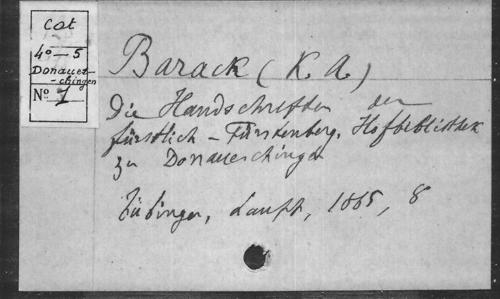 Cat
4° — 5
Donaues-
-chingen
N° 1
Barack (K. A.)
Die Handschriften der
fürstlich - Fürstenberg. Hofbibliothek
zu Donaueschingen
Tübingen, Laupp, 1865, 8